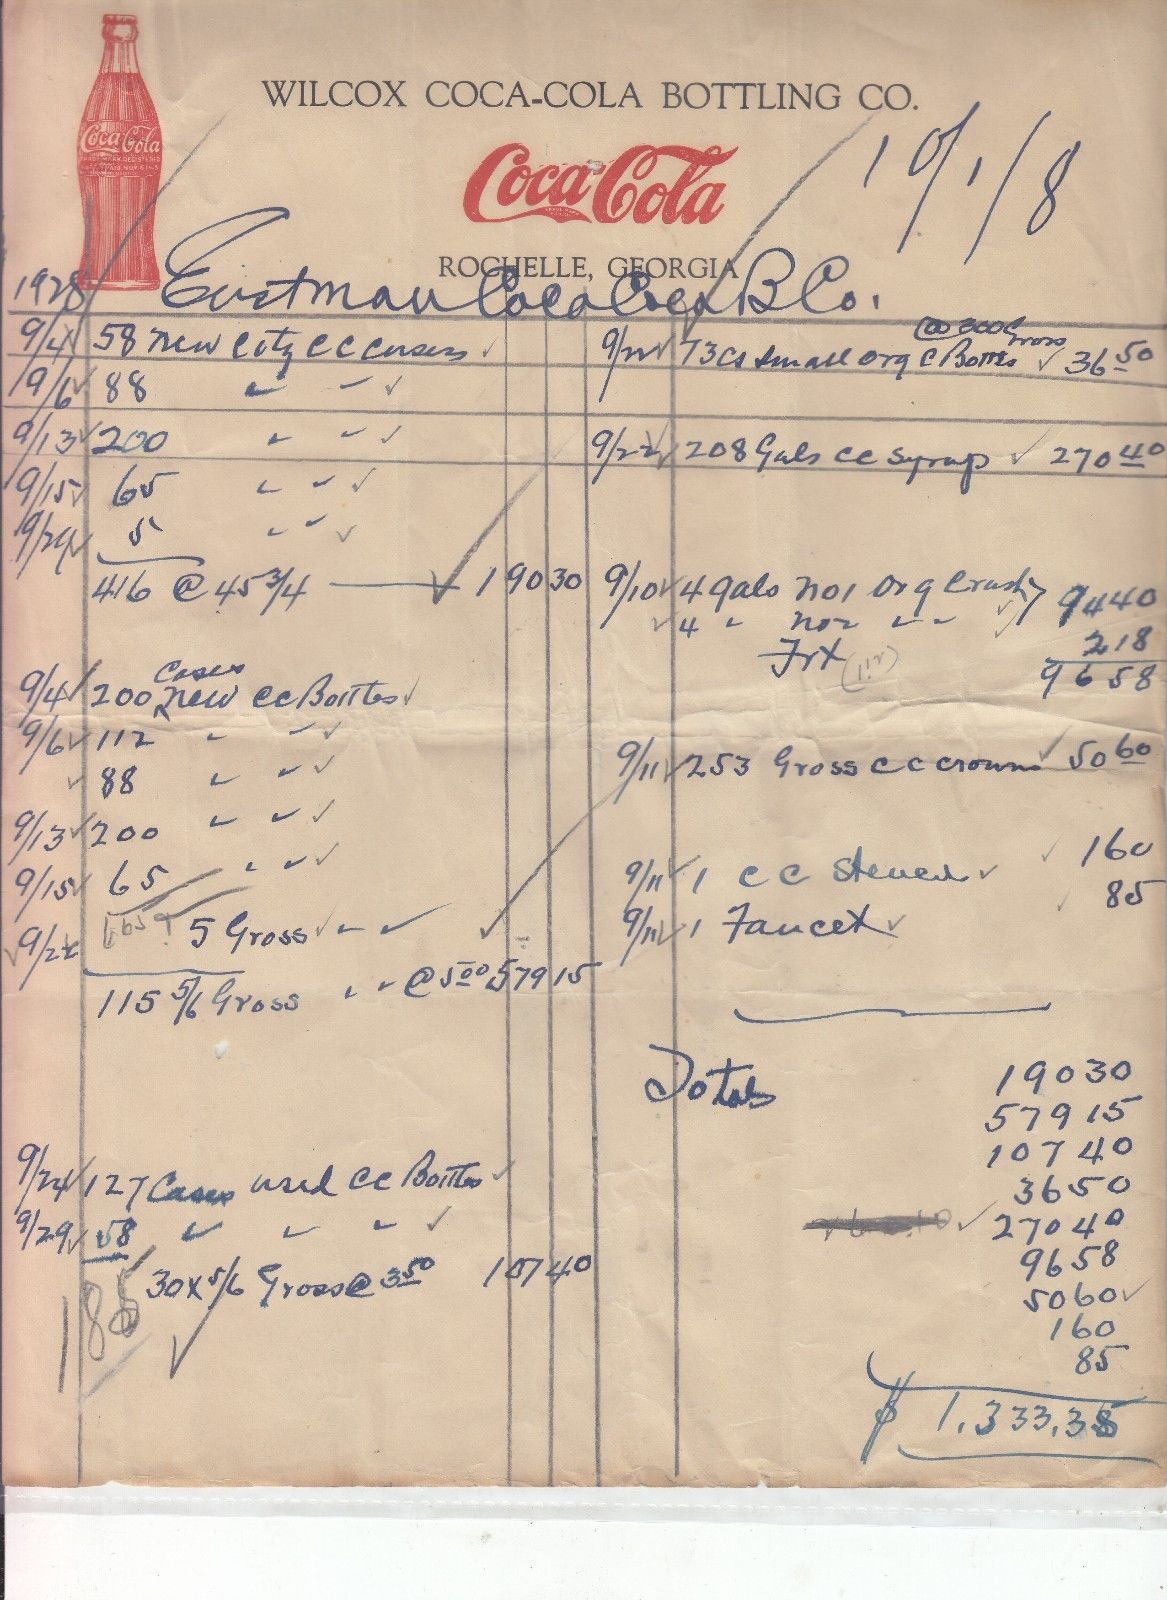 WILCOX COCA-COLA BOTTLING CO.
Coca-Cola
Coca-Cola
TRADE MARK REGISTERED
ROCHELLE, GEORGIA
10/1/8
1928 Eastman Coca Coca B Co.
9/4 58 new city cc cases
9/6 88 " "
9/13 200 " "
9/15 65 " "
9/29 5 " "
416 @ 45 3/4 190 30
9/4 200 Cases new cc Bottles
9/6 112 " "
88 " "
9/13 200 " "
9/15 65 " "
665
9/22 5 Gross " "
115 5/6 Gross " " @ 5.00 579 15
9/24 127 Cases used cc Bottles
9/29 58 " " "
185 30 x 5/6 Gross @ 3 50 107 40
@ 300 Gross
9/22 73 cs small org C Bottles 36 50
9/22 208 Gals cc syrup 270 40
9/10 4 gals no1 org crush 94 40
4 " no2 " "
Frt (112) 2 18
96 58
9/11 253 Gross cc crowns 50 60
9/11 1 CC 1 60
9/11 1 Faucet 85
Totals 190 30
579 15
107 40
36 50
270 40
96 58
50 60
1 60
85
$ 1,333.38